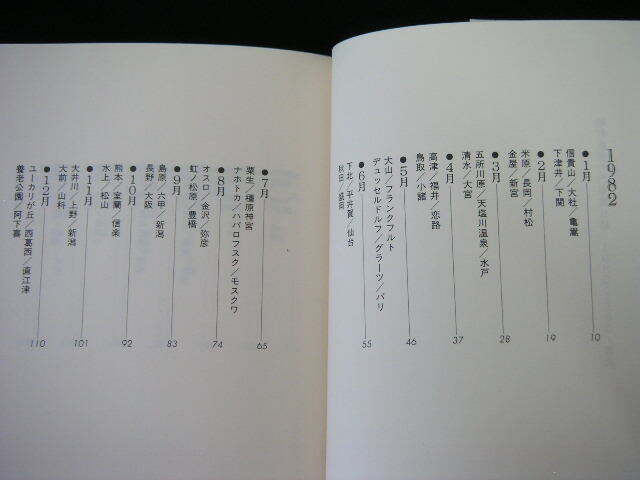 1982
●1月
信貴山／大社／亀嵩
下津井／下関
10
●2月
米原／長岡／村松
金屋／新宮
19
●3月
五所川原／天塩川温泉／水戸
清水／大宮
28
●4月
高津／福井／恋路
鳥取／小諸
37
●5月
大山／フランクフルト
デュッセルドルフ／グラーツ／パリ
46
●6月
下北／平井賀／仙台
秋田／盛岡
55
●7月
粟生／橿原神宮
ナホトカ／ハバロフスク／モスクワ
65
●8月
オスロ／金沢／弥彦
虹ノ松原／豊橋
74
●9月
島原／六甲／新潟
長野／大阪
83
●10月
熊本／室蘭／信楽
水上／松山
92
●11月
大井川／上野／新潟
大前／山科
101
●12月
ユーカリが丘／西葛西／直江津
養老公園／阿下喜
110